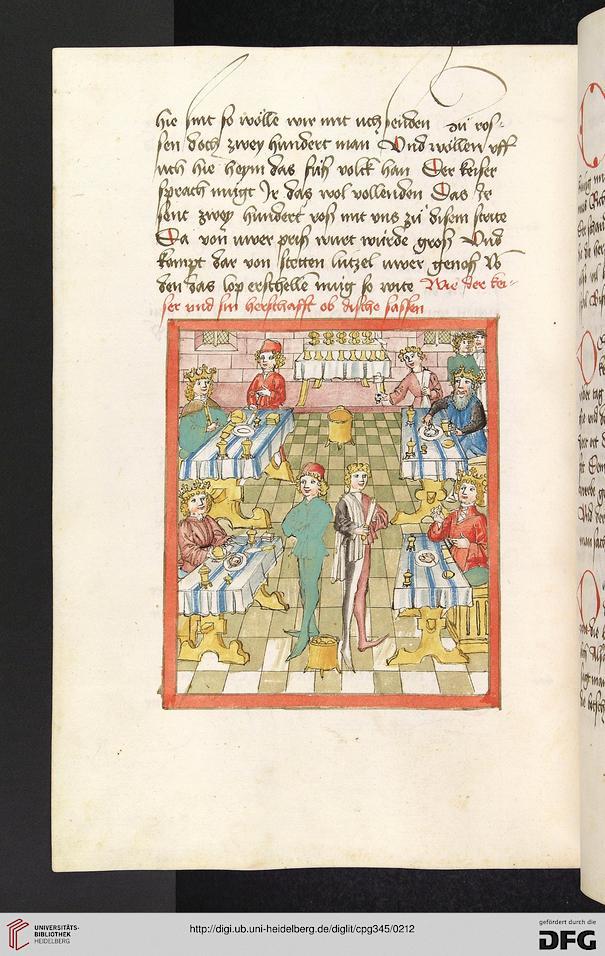 hie mit so wölle wir mit uch senden zu ros-
sen doch zwey hundert man Und wöllen uff
uch hie heym das füß volck han Der keiser
sprach mugt Jr das wol vollenden Das Jr
sent zwey hundert roß mit uns zu disem strite
Da von uwer priß wurt würde groß Und
kompt dar von stetten lutzel uwer genoß
den das lop erschelle mug so wite Wie der kei-
ser und sin herschafft ob dische sassen
UNIVERSITÄTS-
BIBLIOTHEK
HEIDELBERG
http://digi.ub.uni-heidelberg.de/diglit/cpg345/0212
gefördert durch die
DFG